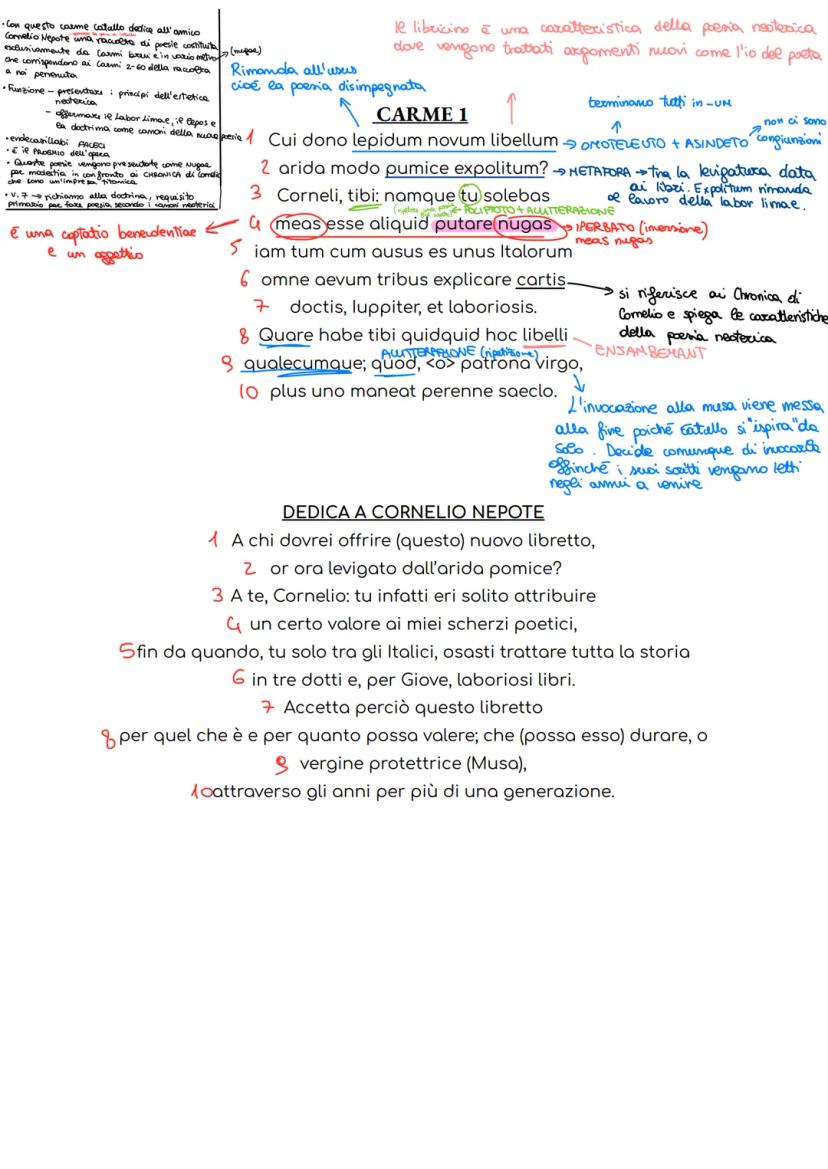 • Con questo carme catullo dedica all'amico
Cornelio Nepote una raccolta di poesie costituita
esclusivamente da Carmi brevi e in vario metro
che corrispondono ai Carmi 2-60 della raccolta
a noi pervenuta
(nugae)
• Funzione - presentare i principi dell'estetica
neoterica
- affermare il Labor Limae, il lepos e
la doctrina come canoni della nuova poesia
• endecasillabi FALECI
• È il PROEMIO dell'opera
• Queste poesie vengono presentate come Nugae
per modestia in confronto ai CHRONICA di Cornelio
che sono un'impresa titanica
• V. 7 → richiamo alla doctrina, requisito
primario per fare poesia secondo i canoni neoterici
le libricino è una caratteristica della poesia neoterica
dove vengono trattati argomenti nuovi come l'io del poeta
Rimanda all'usus
cioè la poesia disimpegnata
terminano tutti in -UM
non ci sono
congiunzioni
CARME 1
1 Cui dono lepidum novum libellum → OMOTELEUTO + ASINDETO
2 arida modo pumice expolitum? → METAFORA → tra la levigatura data
ai libri. Expolitum rimanda
al lavoro della labor limae.
3 Corneli, tibi: namque tu solebas
POLIPTOTO + ALLITTERAZIONE
4 meas esse aliquid putare nugas → IPERBATO (inversione)
meas nugas
È una captatio benevolentiae
e un oggettio
5 iam tum cum ausus es unus Italorum
6 omne aevum tribus explicare cartis
si riferisce ai Chronica di
Cornelio e spiega le caratteristiche
della poesia neoterica
7 doctis, Iuppiter, et laboriosis.
8 Quare habe tibi quidquid hoc libelli
ENSAMBEMANT
ALLITTERAZIONE (ripetizione)
9 qualecumque; quod, <o> patrona virgo,
10 plus uno maneat perenne saeclo.
L'invocazione alla musa viene messa
alla fine poiché Catullo si "ispira" da
solo. Decide comunque di invocarla
affinché i suoi scritti vengano letti
negli anni a venire
DEDICA A CORNELIO NEPOTE
1 A chi dovrei offrire (questo) nuovo libretto,
2 or ora levigato dall'arida pomice?
3 A te, Cornelio: tu infatti eri solito attribuire
4 un certo valore ai miei scherzi poetici,
5 fin da quando, tu solo tra gli Italici, osasti trattare tutta la storia
6 in tre dotti e, per Giove, laboriosi libri.
7 Accetta perciò questo libretto
8 per quel che è e per quanto possa valere; che (possa esso) durare, o
9 vergine protettrice (Musa),
10 attraverso gli anni per più di una generazione.